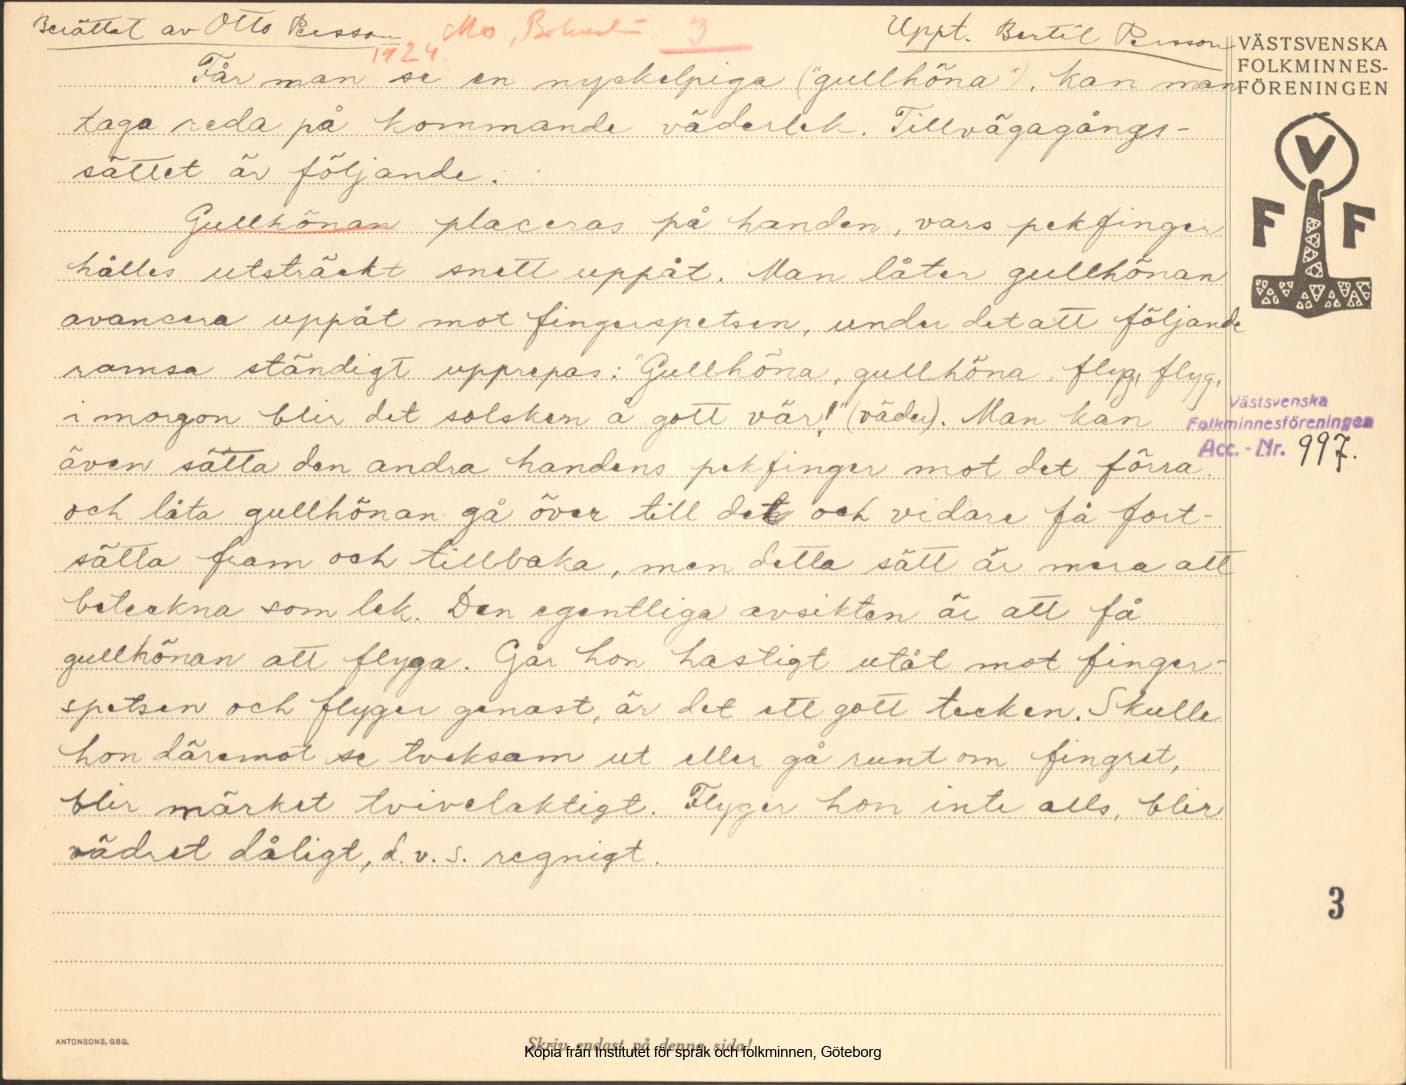 Berättat av Otto Persson
1924.
Mo, Bohuslän
3
Uppt. Bertil Persson
VÄSTSVENSKA
FOLKMINNES-
FÖRENINGEN
V
F F
Får man se en nyckelpiga ("gullhöna"), kan man
taga reda på kommande väderlek. Tillvägagångs-
sättet är följande.
Gullhönan placeras på handen, vars pekfinger
hålles utsträckt snett uppåt. Man låter gullhönan
avancera uppåt mot fingerspetsen, under det att följande
ramsa ständigt upprepas: "Gullhöna, gullhöna, flyg, flyg,
i morgon blir det solsken å gott vär!" (väder). Man kan
även sätta den andra handens pekfinger mot det förra
och låta gullhönan gå över till det och vidare få fort-
sätta fram och tillbaka, men detta sätt är mera att
beteckna som lek. Den egentliga avsikten är att få
gullhönan att flyga. Går hon hastigt utåt mot finger-
spetsen och flyger genast, är det ett gott tecken. Skulle
hon däremot se tveksam ut eller gå runt om fingret,
blir märket tvivelaktigt. Flyger hon inte alls, blir
vädret dåligt, d.v.s. regnigt.
Västsvenska
Folkminnesföreningen
Acc. - Nr. 997.
3
ANTONSONS, GBG.
Skriv endast på denna sida!
Kopia från Institutet för språk och folkminnen, Göteborg